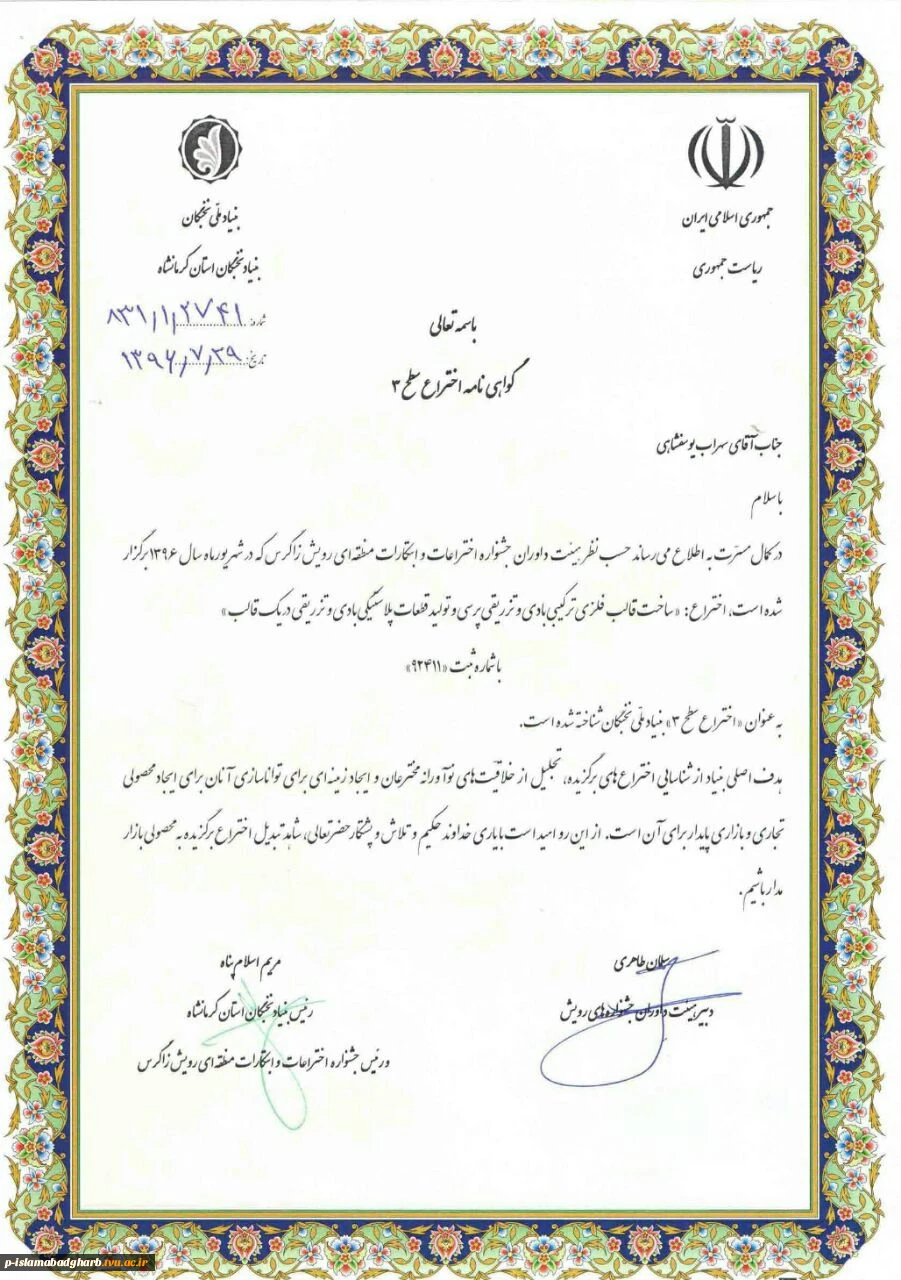 جمهوری اسلامی ایران
ریاست جمهوری
بنیاد ملّی نخبگان
بنیاد نخبگان استان کرمانشاه
شماره: ۸۳۱/۱/۲۷۴۱
تاریخ: ۱۳۹۶/۷/۲۹
باسمه تعالی
گواهی نامه اختراع سطح ۳
جناب آقای سهراب یوسفشاهی
با سلام
در کمال مسرّت به اطلاع می رساند حسب نظر هیئت داوران جشنواره اختراعات و ابتکارات منطقه ای رویش زاگرس که در شهریور ماه سال ۱۳۹۶ برگزار
شده است، اختراع: «ساخت قالب فلزی ترکیبی بادی و تزریقی پرسی و تولید قطعات پلاستیکی بادی و تزریقی در یک قالب»
با شماره ثبت «۹۲۴۱۱»
به عنوان «اختراع سطح ۳» بنیاد ملّی نخبگان شناخته شده است.
هدف اصلی بنیاد از شناسایی اختراع های برگزیده، تجلیل از خلاقیّت های نوآورانه مخترعان و ایجاد زمینه ای برای تواناسازی آنان برای ایجاد محصولی
تجاری و بازاری پایدار برای آن است. از این رو امید است با یاری خداوند حکیم و تلاش و پشتکار حضرتعالی، شاهد تبدیل اختراع برگزیده به محصولی بازار
مدار باشیم.
سلمان طاهری
دبیر هیئت داوران جشنواره های رویش
مریم اسلام پناه
رئیس بنیاد نخبگان استان کرمانشاه
و رئیس جشنواره اختراعات و ابتکارات منطقه ای رویش زاگرس
p-islamabadgharb.tvu.ac.ir